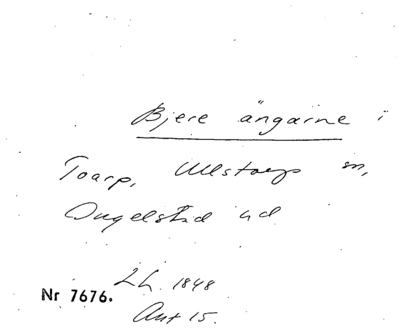 Bjere ängarne i
Toarp, Ullstorps sn,
Ingelstad hd
L.h. 1848
Nr 7676.
Akt 15.